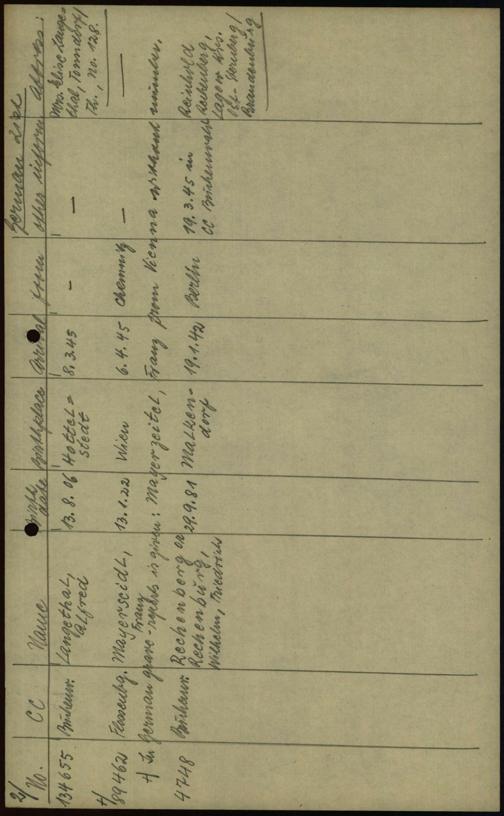 2/
German List
No. CC Name Birth date Birthplace Arrival from other inform. Address:
134655 Buchenw. Langethal, Alfred 13.8.06 Hottelstedt 8.3.45 — — Mrs. Elise Langethal, Tonndorf/Th., No. 128.
+/ 89462 Flossenbg. Mayerseidl, Franz 13.1.22 Wien 6.4.45 Chemnitz — —
+/ In German grave-replies is given: Mayerzeitel, Franz from Vienna without number.
4748 Buchenw. Rechenberg or Rechenburg, Wilhelm, Friedrich 29.9.81 Malkendorf 19.1.42 Berlin 19.3.45 in CC Buchenwald Reinhold Rechenberg, Lagow Krs. Ost-Sternberg/Brandenburg